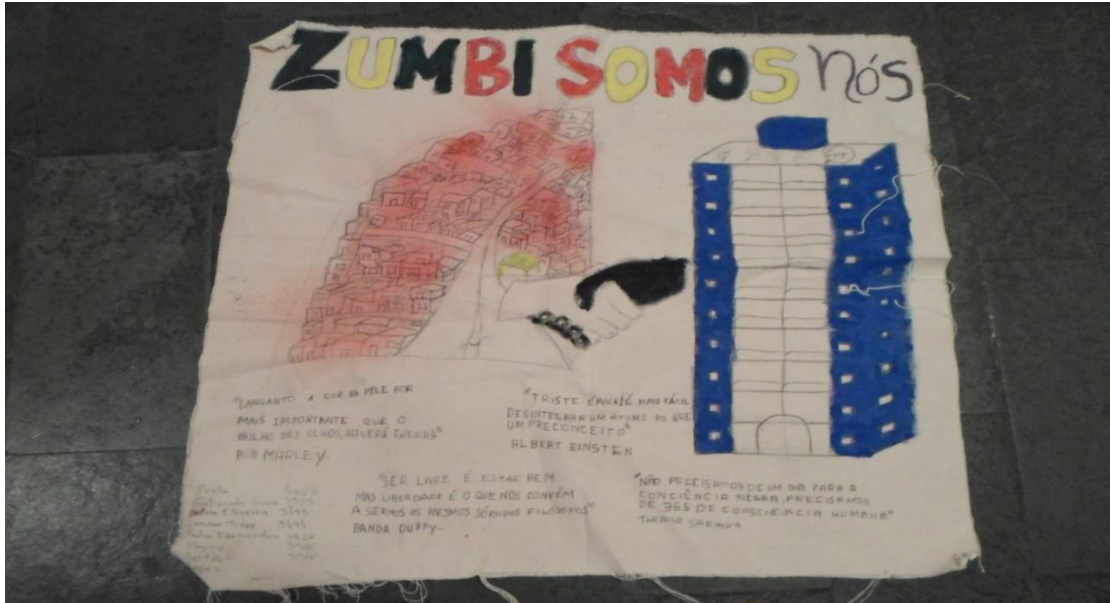 ZUMBI SOMOS nós
"ENQUANTO A COR DA PELE FOR
MAIS IMPORTANTE QUE O
BRILHO DOS OLHOS, HAVERÁ GUERRA"
BOB MARLEY.
"TRISTE ÉPOCA É MAIS FÁCIL
DESINTEGRAR UM ÁTOMO DO QUE
UM PRECONCEITO"
ALBERT EINSTEN
"SER LIVRE É ESTAR BEM
MAS LIBERDADE É O QUE NOS CONVÉM
A SERMOS OS MESMOS SÓRDIDOS FILÓSOFOS"
BANDA DUPPY-
"NÃO PRECISAMOS DE UM DIA PARA A
CONCIÊNCIA NEGRA, PRECISAMOS
DE 365 DE CONSCIÊNCIA HUMANA"
THIAGO SARAIVA
Oliveira
Fernandes